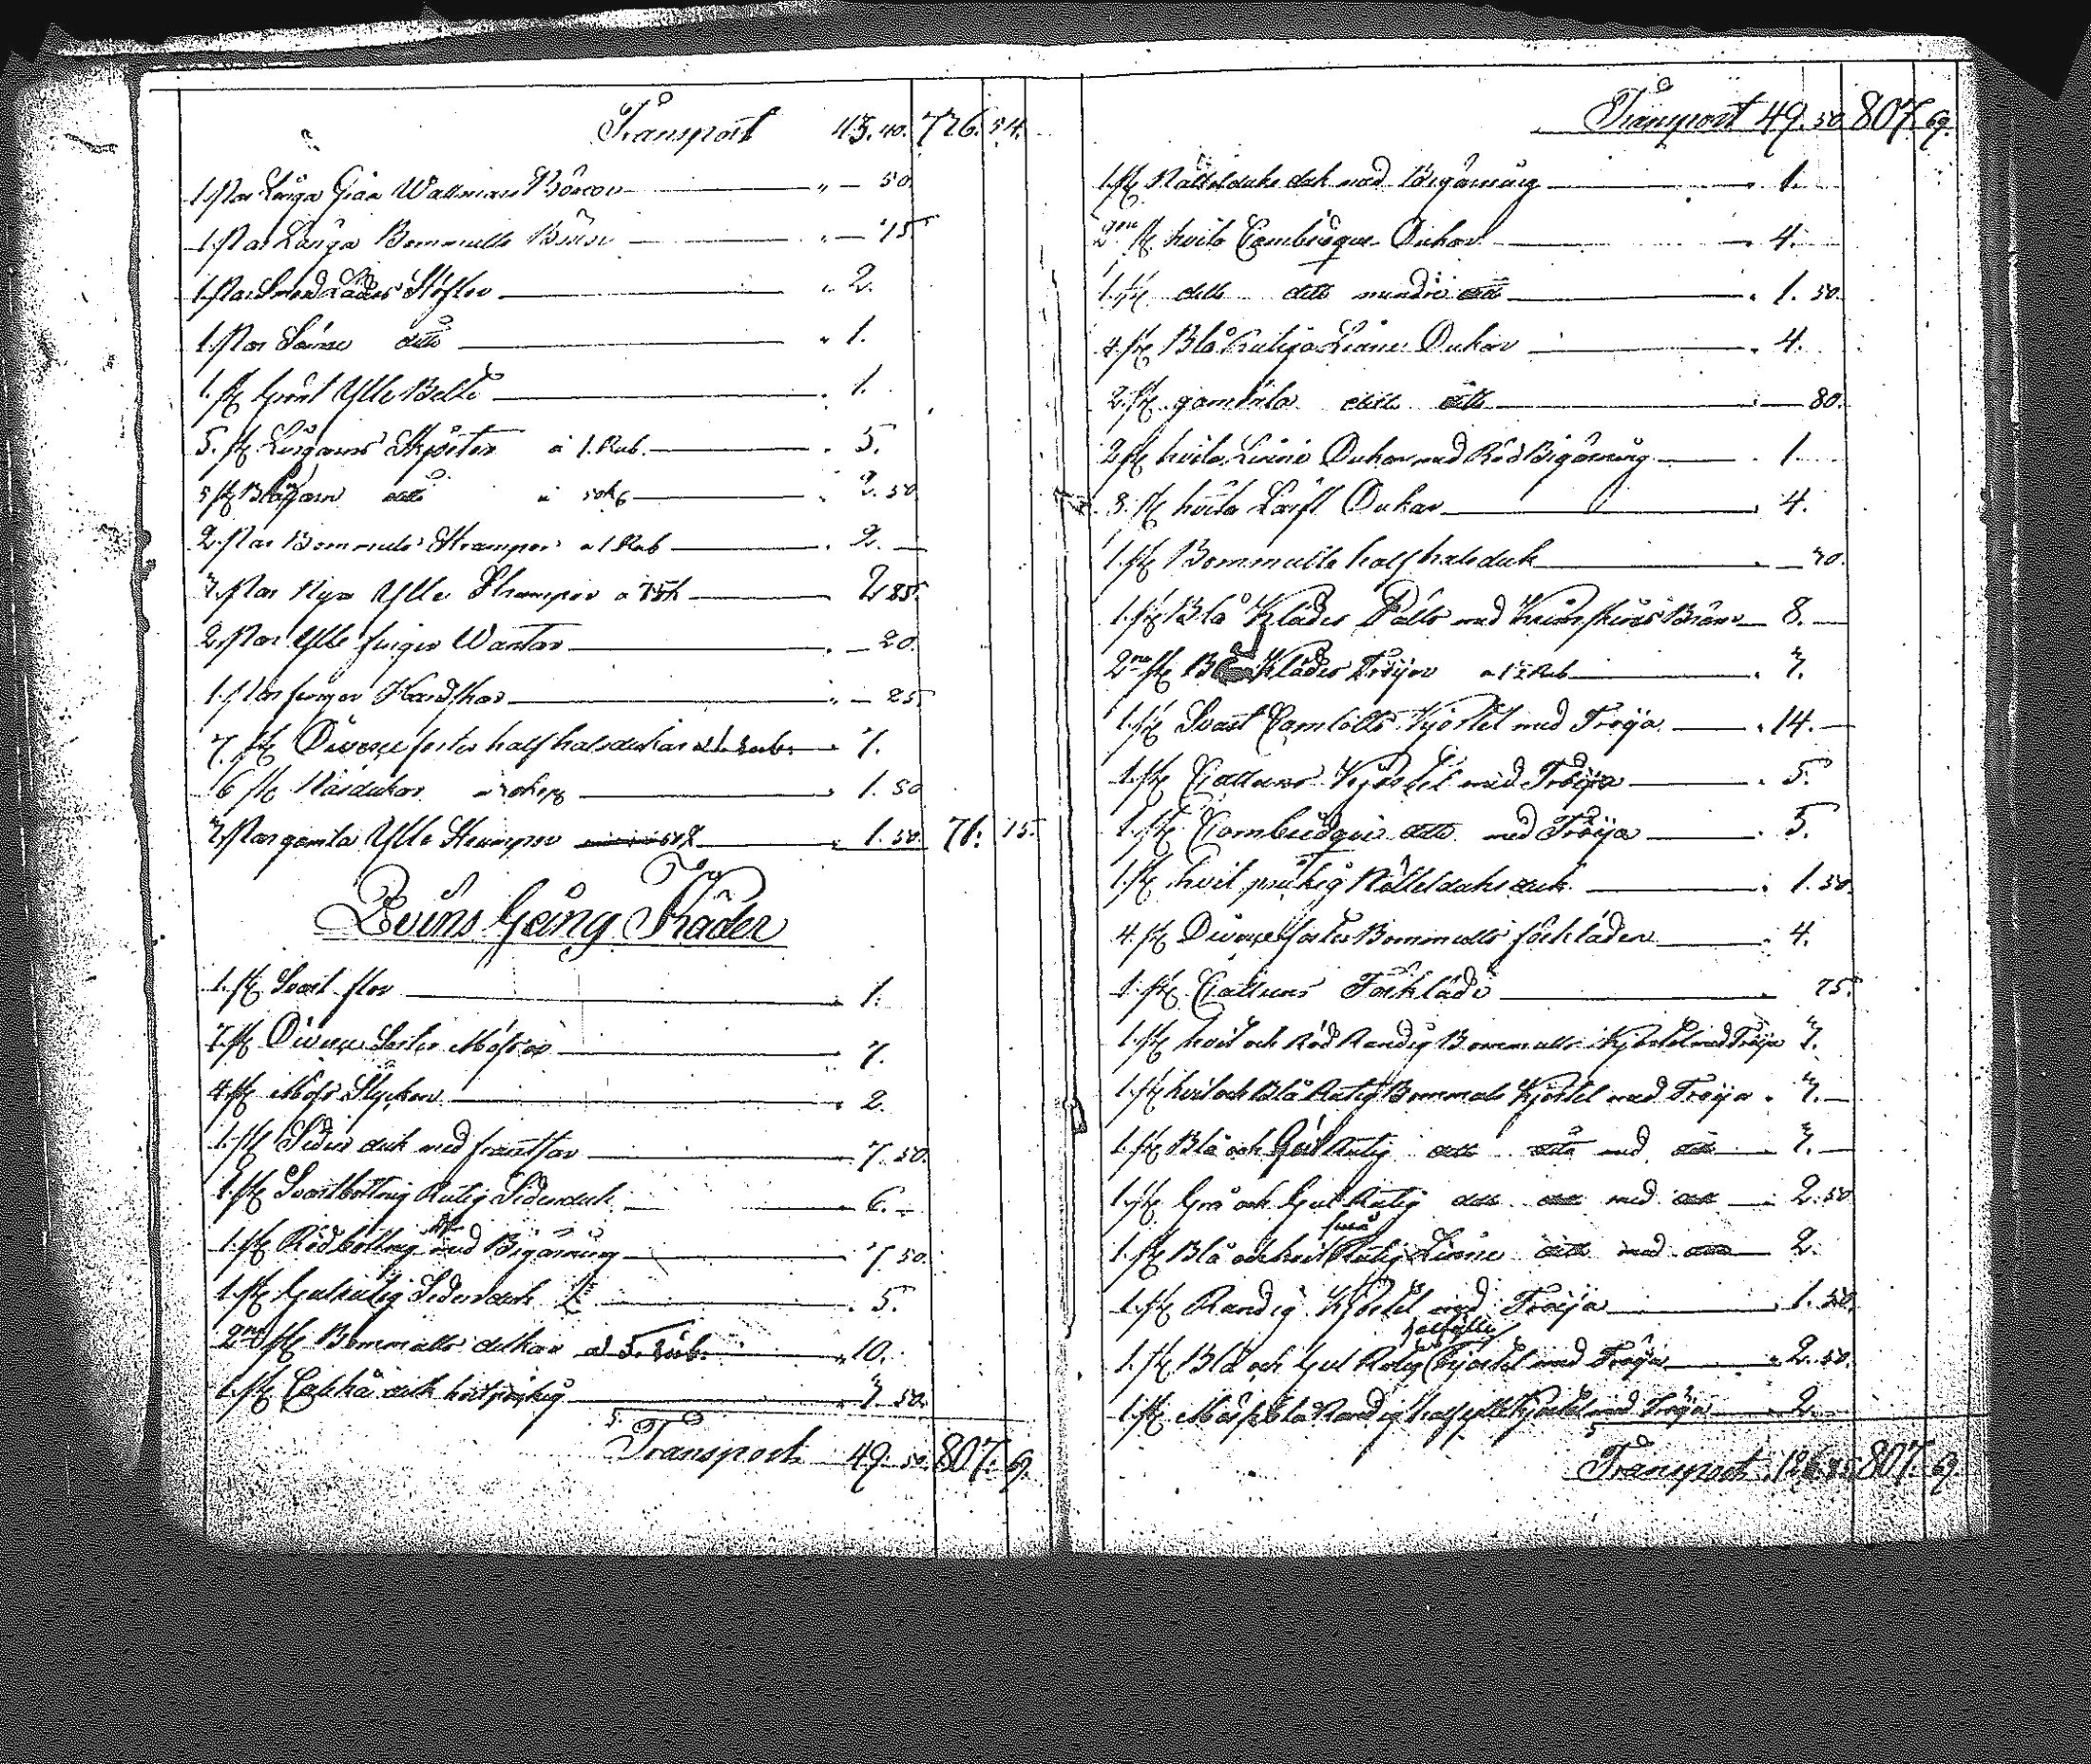 Transport 43. 40. 726. 54.
1. Par Långa Gråa Wallmars Böxor " — 50.
1. Par Långa Bommulls Böxor " — 75
1. Par Smord Läders Stöflor " 2.
1. Par Sämre ditto " 1.
1. st Grönt Ylle Bälte " 1.
5. st Lingarns Skjortor à 1. Rub. " 5.
5 st Blågarn ditto à 50 k " 2. 50
2. Par Bommuls Strumpor à 1 Rub " 2. —
3. Par Nya Ylle Strumpor à 75 k 2 25.
2. Par Ylle finger Wantar " — 20.
1. Par finger Handskar " — 25
7. st Diverse sorter half halsdukar à 1. Rub. " 7.
6 st Näsdukar " 1. 50
3. Par gamla Ylle Strumpor " 1. 50. 71: 15.
Qvins Gång Kläder
1. st Svart flor " 1.
7. st Diverse Sorter Mössor " 7.
4 st Möss Stycken " 2.
1. st Siden duk med frantsar " 7. 50.
1. st Svartbottnig Rutig Sidenduk " 6. —
1. st Rödbottnig med Bigärning " 7 50.
1. st Gulrutig Sidenduk " 5.
2ne st Bommulls dukar à 5. Rub. " 10.
1. st duk hvitprickig " 3 50.
Transport 49. 50. 807. 69.
Transport 49. 50 807. 69.
1. st Nättelduks duk med Bigärning " 1.
2ne st hvita Cambriqve Dukar " 4.
1. st ditto ditto mindre ditto " 1. 50.
4. st Blå Rutiga Linne Dukar " 4.
2. st gamla ditto ditto " — 80.
2 st hvita Linne Dukar med Röd Bigärning " 1
8. st hvita Lärft Dukar " 4.
1. st Bommulls half halsduk " — 30.
1. st Blå Klädes med Bräm 8. —
2ne st Klädes Tröjor à 1½ Rub " 3.
1. st Svart Camlotts Kjortel med Tröja " 14. —
1. st Cattuns Kjortel med Tröja " 5.
1. st Cambridqve ditto med Tröja " 5.
1. st hvit prickig Nättelduks duk " 1. 50.
4. st Diverse sorter Bommulls förkläden " 4.
1. st Cattuns Förkläde " 75.
1. st hvit och Röd Randig Bommulls Kjortel med Tröja 3.
1. st hvit och Blå Rutig Bommuls Kjortel med Tröja " 3. —
1. st Blå och Gul Rutig ditto ditto med ditto " 3. —
1. st Grå och Gul Rutig ditto ditto med ditto " 2. 50
1. st Blå och hvit små Rutig Linne ditto med ditto 2.
1. st Randig Kjortel med Tröja " 1. 50.
1. st Blå och Gul Rutig halfylle Kjortel med Tröja " 2. 50.
1. st Mörkblå Randig halfylle Kjortel med Tröja " 2. —
Transport 126. 85 807. 69.